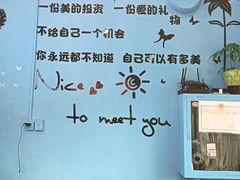 一份美的投资 一份爱的礼物
不给自己一个机会
你永远都不知道 自己可以有多美
Nice
to meet you